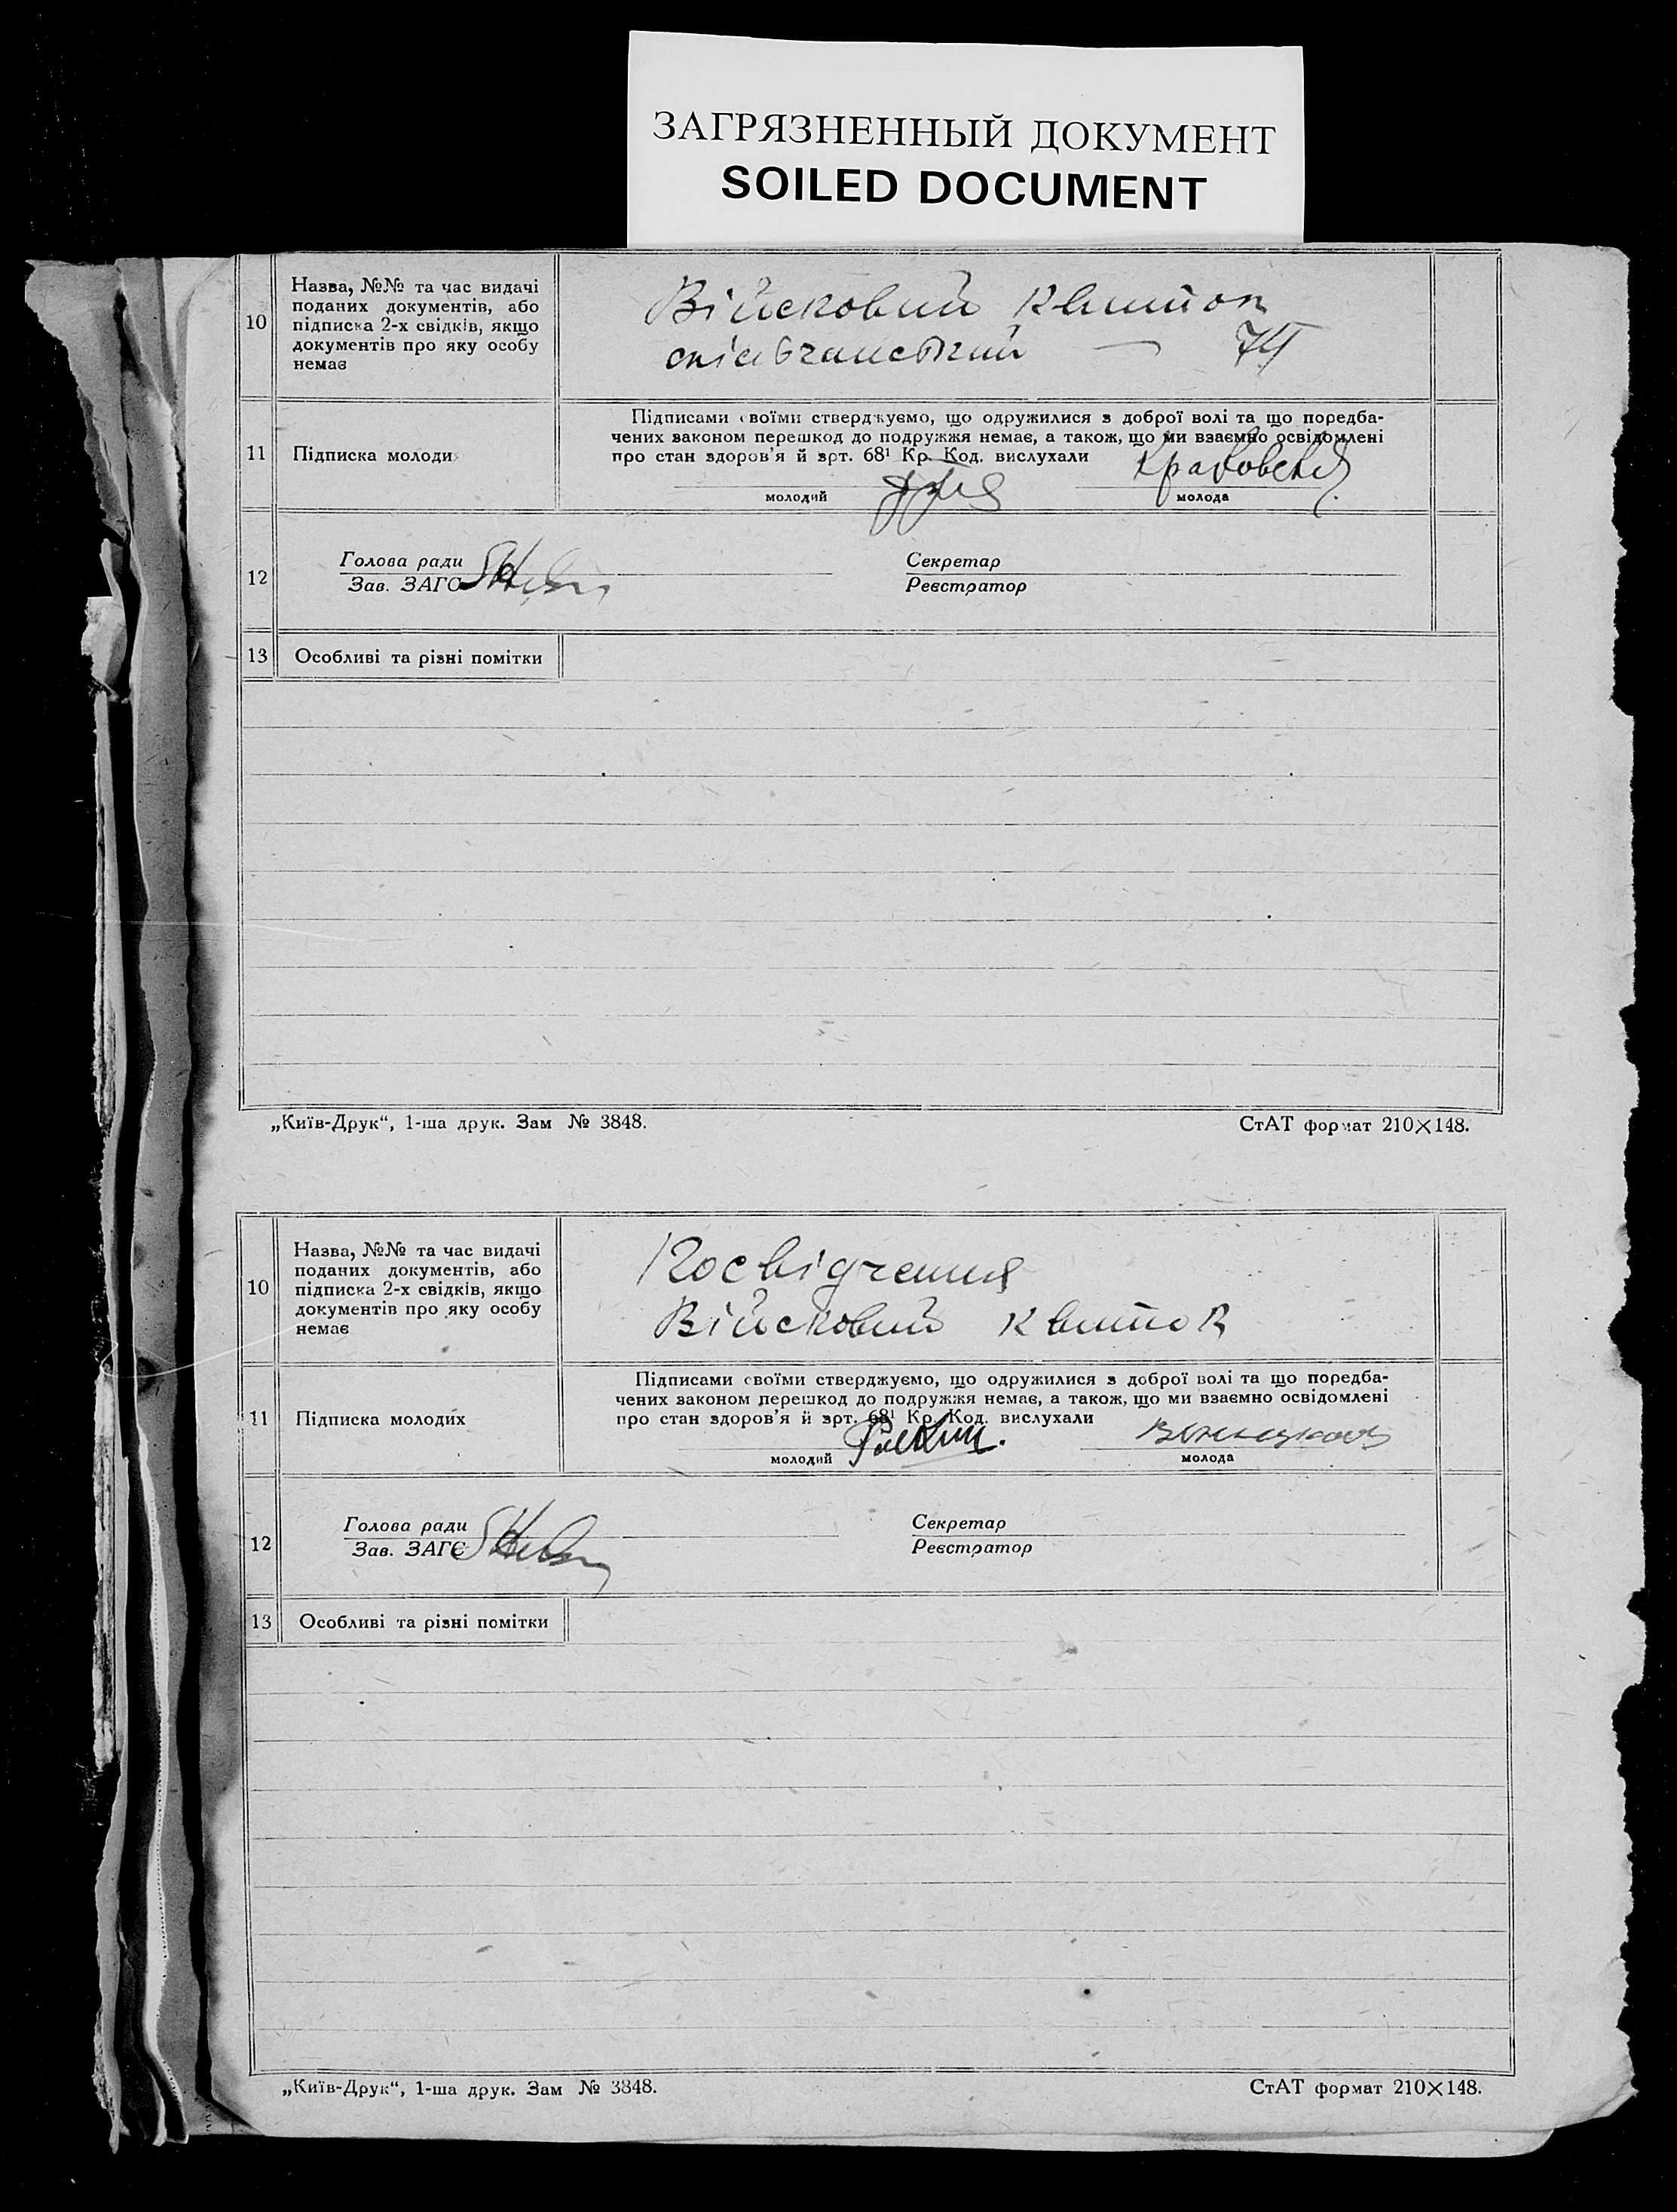 ЗАГРЯЗНЕННЫЙ ДОКУМЕНТ
SOILED DOCUMENT
10
Назва, №№ та час видачі
поданих документів, або
підписка 2-х свідків, якщо
документів про яку особу
немає
Війсковий квиток
74
11
Підписка молоди
Підписами своїми стверджуємо, що одружилися з доброї волі та що поредба-
чених законом перешкод до подружжя немає, а також, що ми взаємно освідомлені
про стан здоров'я й зрт. 68¹ Кр. Код. вислухали
молодий
молода
12
Голова ради
Зав. ЗАГС
Секретар
Реєстратор
13
Особливі та різні помітки
„Київ-Друк“, 1-ша друк. Зам № 3848.
СтАТ формат 210×148.
10
Назва, №№ та час видачі
поданих документів, або
підписка 2-х свідків, якщо
документів про яку особу
немає
Посвідчення
Війсковий квиток
11
Підписка молодих
Підписами своїми стверджуємо, що одружилися з доброї волі та що поредба-
чених законом перешкод до подружжя немає, а також, що ми взаємно освідомлені
про стан здоров'я й зрт. 68¹ Кр. Код. вислухали
молодий
молода
12
Голова ради
Зав. ЗАГС
Секретар
Реєстратор
13
Особливі та різні помітки
„Київ-Друк“, 1-ша друк. Зам № 3848.
СтАТ формат 210×148.